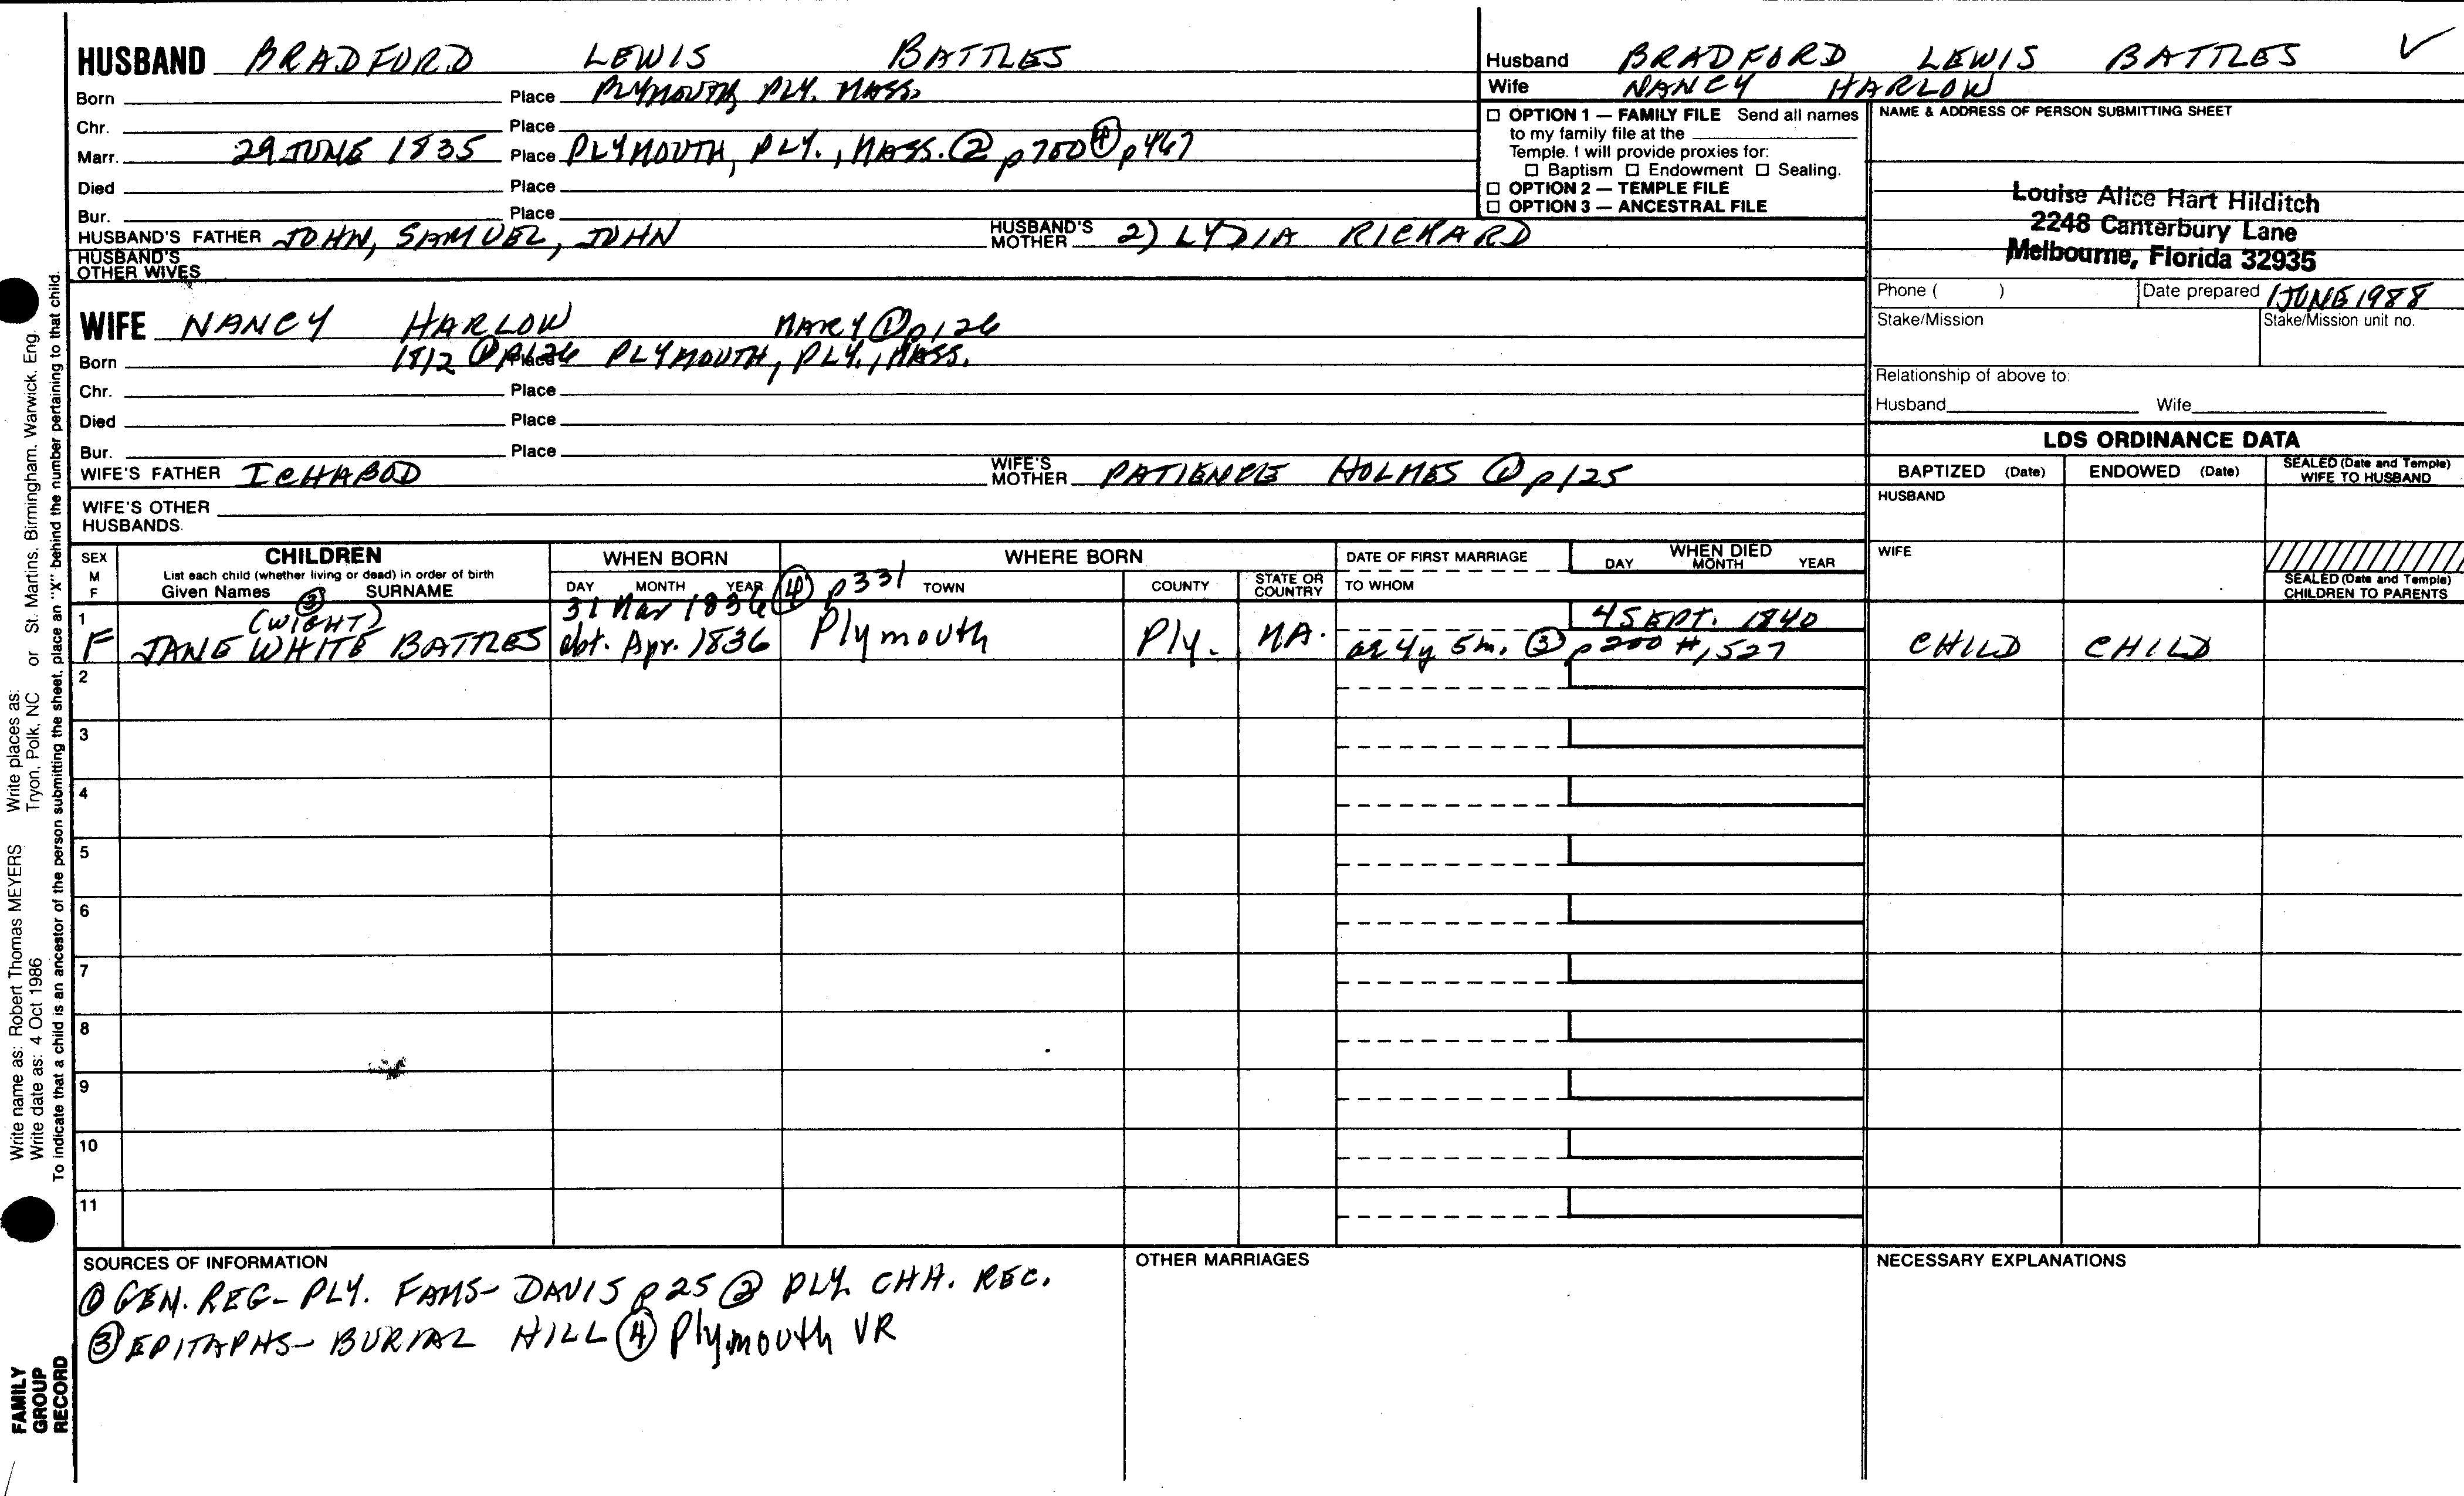 HUSBAND BRADFORD LEWIS BATTLES
Born Place PLYMOUTH, PLY. MASS.
Chr. Place
Marr. 29 JUNE 1835 Place PLYMOUTH, PLY., MASS. ② p700 ④ p467
Died Place
Bur. Place
HUSBAND'S FATHER JOHN, SAMUEL, JOHN HUSBAND'S MOTHER 2) LYDIA RICKARD
HUSBAND'S OTHER WIVES
Husband BRADFORD LEWIS BATTLES ✓
Wife NANCY HARLOW
☐ OPTION 1 — FAMILY FILE Send all names
to my family file at the
Temple. I will provide proxies for:
☐ Baptism ☐ Endowment ☐ Sealing.
☐ OPTION 2 — TEMPLE FILE
☐ OPTION 3 — ANCESTRAL FILE
NAME & ADDRESS OF PERSON SUBMITTING SHEET
Louise Alice Hart Hilditch
2248 Canterbury Lane
Melbourne, Florida 32935
Phone ( ) Date prepared 1 JUNE 1988
Stake/Mission Stake/Mission unit no.
Relationship of above to:
Husband Wife
WIFE NANCY HARLOW MARY ① p126
Born 1812 ① p126 Place PLYMOUTH, PLY., MASS.
Chr. Place
Died Place
Bur. Place
WIFE'S FATHER ICHABOD WIFE'S MOTHER PATIENCE HOLMES ① p125
WIFE'S OTHER
HUSBANDS.
LDS ORDINANCE DATA
BAPTIZED (Date) ENDOWED (Date) SEALED (Date and Temple) WIFE TO HUSBAND
HUSBAND
WIFE
SEALED (Date and Temple) CHILDREN TO PARENTS
SEX M F CHILDREN WHEN BORN WHERE BORN DATE OF FIRST MARRIAGE WHEN DIED
List each child (whether living or dead) in order of birth
Given Names SURNAME DAY MONTH YEAR TOWN COUNTY STATE OR COUNTRY TO WHOM DAY MONTH YEAR
③ (WIGHT) 31 Mar 1836 ④ p331 4 SEPT. 1840
1 F JANE WHITE BATTLES abt. Apr. 1836 Plymouth Ply. MA. ae 4y 5m. ③ p200 #1,527 CHILD CHILD
2
3
4
5
6
7
8
9
10
11
SOURCES OF INFORMATION
① GEN. REG- PLY. FAMS- DAVIS p25 ② PLY. CHH. REC.
③ EPITAPHS- BURIAL HILL ④ Plymouth VR
OTHER MARRIAGES
NECESSARY EXPLANATIONS
Write name as: Robert Thomas MEYERS Write places as: St. Martins, Birmingham, Warwick, Eng.
Write date as: 4 Oct 1986 Tryon, Polk, NC or
To indicate that a child is an ancestor of the person submitting the sheet, place an "X" behind the number pertaining to that child.
FAMILY
GROUP
RECORD